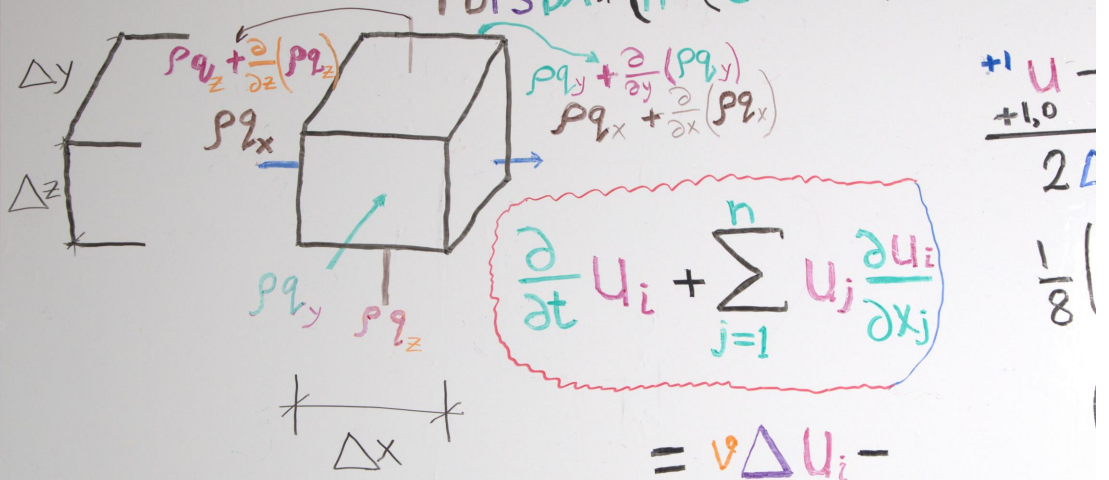 Δy
ρq_z + ∂/∂z (ρq_z)
ρq_y + ∂/∂y (ρq_y)
ρq_x
ρq_x + ∂/∂x (ρq_x)
Δz
ρq_y
ρq_z
Δx
∂/∂t u_i + Σ_{j=1}^{n} u_j ∂u_i/∂x_j
= νΔu_i −
+1 u −
+1,0
2
1/8 (